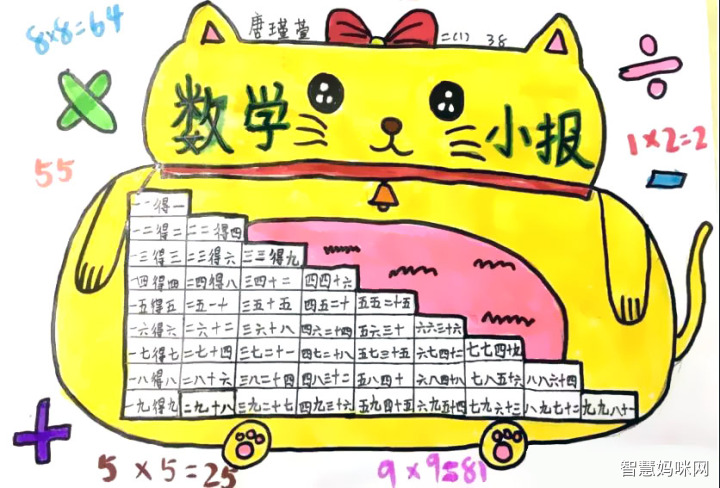 8×8=64
唐瑾萱 二(1) 38
数学 小报
×
÷
1×2=2
55
−
一一得一
一二得二 二二得四
一三得三 二三得六 三三得九
一四得四 二四得八 三四十二 四四十六
一五得五 二五一十 三五十五 四五二十 五五二十五
一六得六 二六十二 三六十八 四六二十四 五六三十 六六三十六
一七得七 二七十四 三七二十一 四七二十八 五七三十五 六七四十二 七七四十九
一八得八 二八十六 三八二十四 四八三十二 五八四十 六八四十八 七八五十六 八八六十四
一九得九 二九十八 三九二十七 四九三十六 五九四十五 六九五十四 七九六十三 八九七十二 九九八十一
+
5×5=25
9×9=81
智慧妈咪网